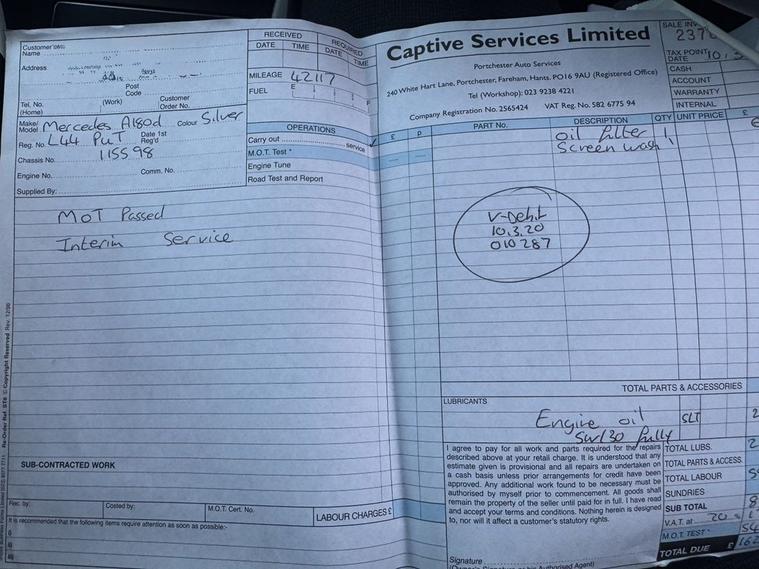 Customer
Address
Post Code
Tel. No. (Work) Customer Order No.
(Home)
Make/ Model Mercedes A180d Colour Silver
Reg. No. L44 PUT Date 1st Reg'd
Chassis No. 115598
Engine No. Comm. No.
Supplied By:
RECEIVED REQUIRED
DATE TIME DATE TIME
MILEAGE 42117
FUEL E F
OPERATIONS
Carry out service
M.O.T. Test
Engine Tune
Road Test and Report
MOT Passed
Interim Service
SUB-CONTRACTED WORK
Costed by: M.O.T Cert. No. LABOUR CHARGES £
It is recommended that the following items require attention as soon as possible:-
Captive Services Limited
Portchester Auto Services
240 White Hart Lane, Portchester, Fareham, Hants. PO16 9AU (Registered Office)
Tel (Workshop): 023 9238 4221
Company Registration No. 2565424 VAT Reg. No. 582 6775 94
SALE INV
TAX POINT DATE
CASH
ACCOUNT
WARRANTY
INTERNAL
£ P PART No. DESCRIPTION QTY UNIT PRICE £
oil filter 1
Screen wash 1
V-Debit
10.3.20
010287
TOTAL PARTS & ACCESSORIES
LUBRICANTS
Engine oil 5LT
5w/30 fully
I agree to pay for all work and parts required for the repairs
described above at your retail charge. It is understood that any
estimate given is provisional and all repairs are undertaken on
a cash basis unless prior arrangements for credit have been
approved. Any additional work found to be necessary must be
authorised by myself prior to commencement. All goods shall
remain the property of the seller until paid for in full. I have read
and accept your terms and conditions. Nothing herein is designed
to, nor will it affect a customer's statutory rights.
Signature
TOTAL LUBS.
TOTAL PARTS & ACCESS.
TOTAL LABOUR
SUNDRIES
SUB TOTAL
V.A.T. at 20 %
M.O.T. TEST 54
TOTAL DUE £